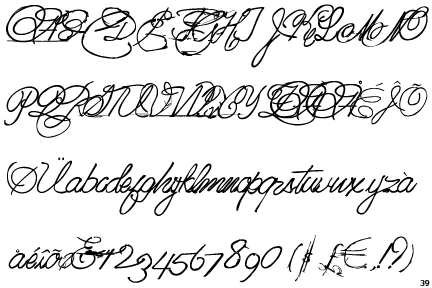 ABCDEFGHIJKLMNO
PQRSTUVWXYZÀÅÉÎÕ
ØÜabcdefghijklmnopqrstuvwxyzà
åéîõø&1234567890($£€.,!?)
39